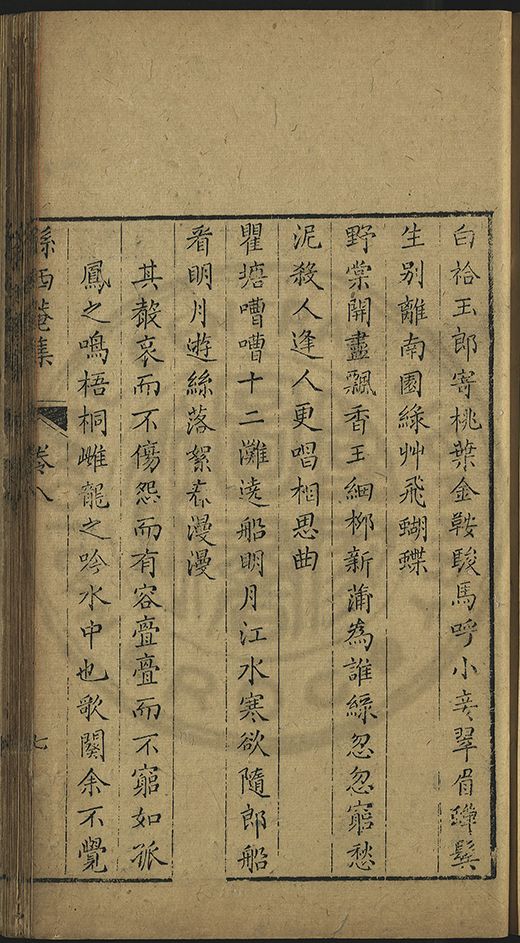 白袷玉郎寄桃葉金鞍駿馬呼小妾翠眉蟬鬂
生別離南園綠艸飛蝴蝶
野棠開盡飄香玉細栁新蒲爲誰綠忽忽窮愁
泥殺人逢人更唱相思曲
瞿塘嘈嘈十二灘遶船明月江水寒欲隨郎船
看明月遊絲落絮春漫漫
其聲哀而不傷怨而有容亹亹而不窮如孤
鳳之鳴梧桐雌龍之吟水中也歌闋余不覺
孫西菴集
卷八
七